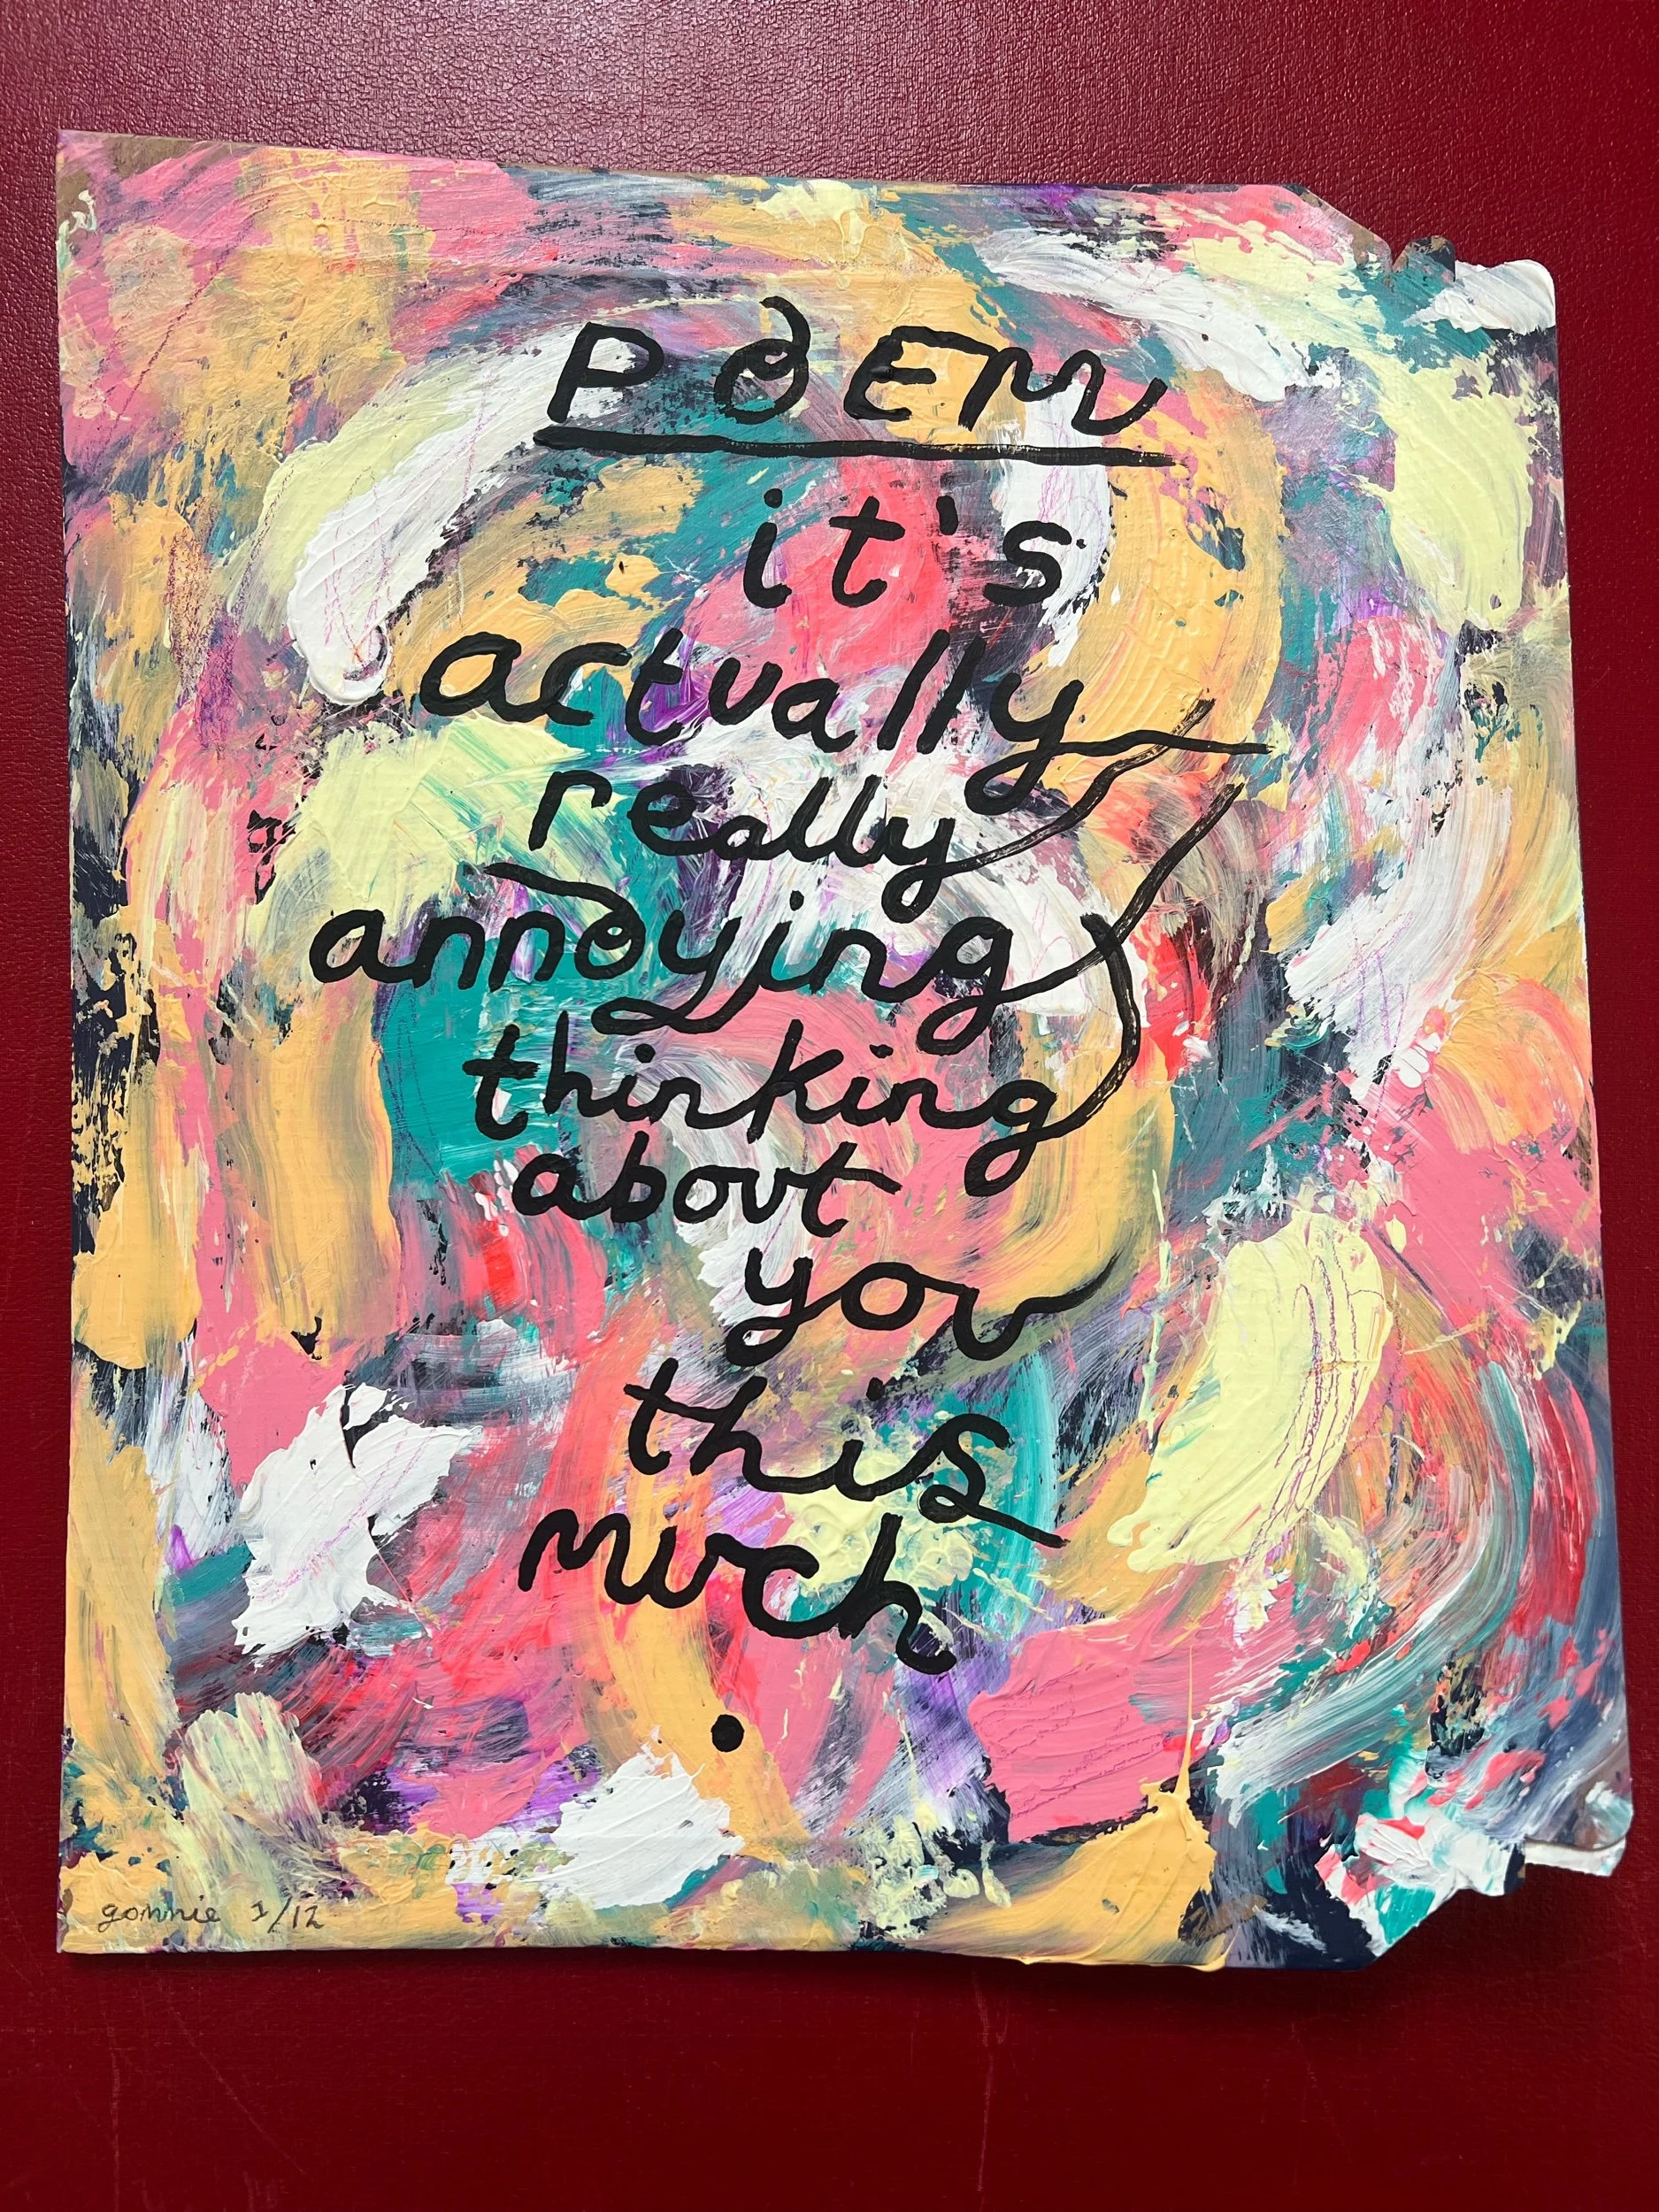 POEM
it's
actually
really
annoying
thinking
about
you
this
much
.
gommie 1/12